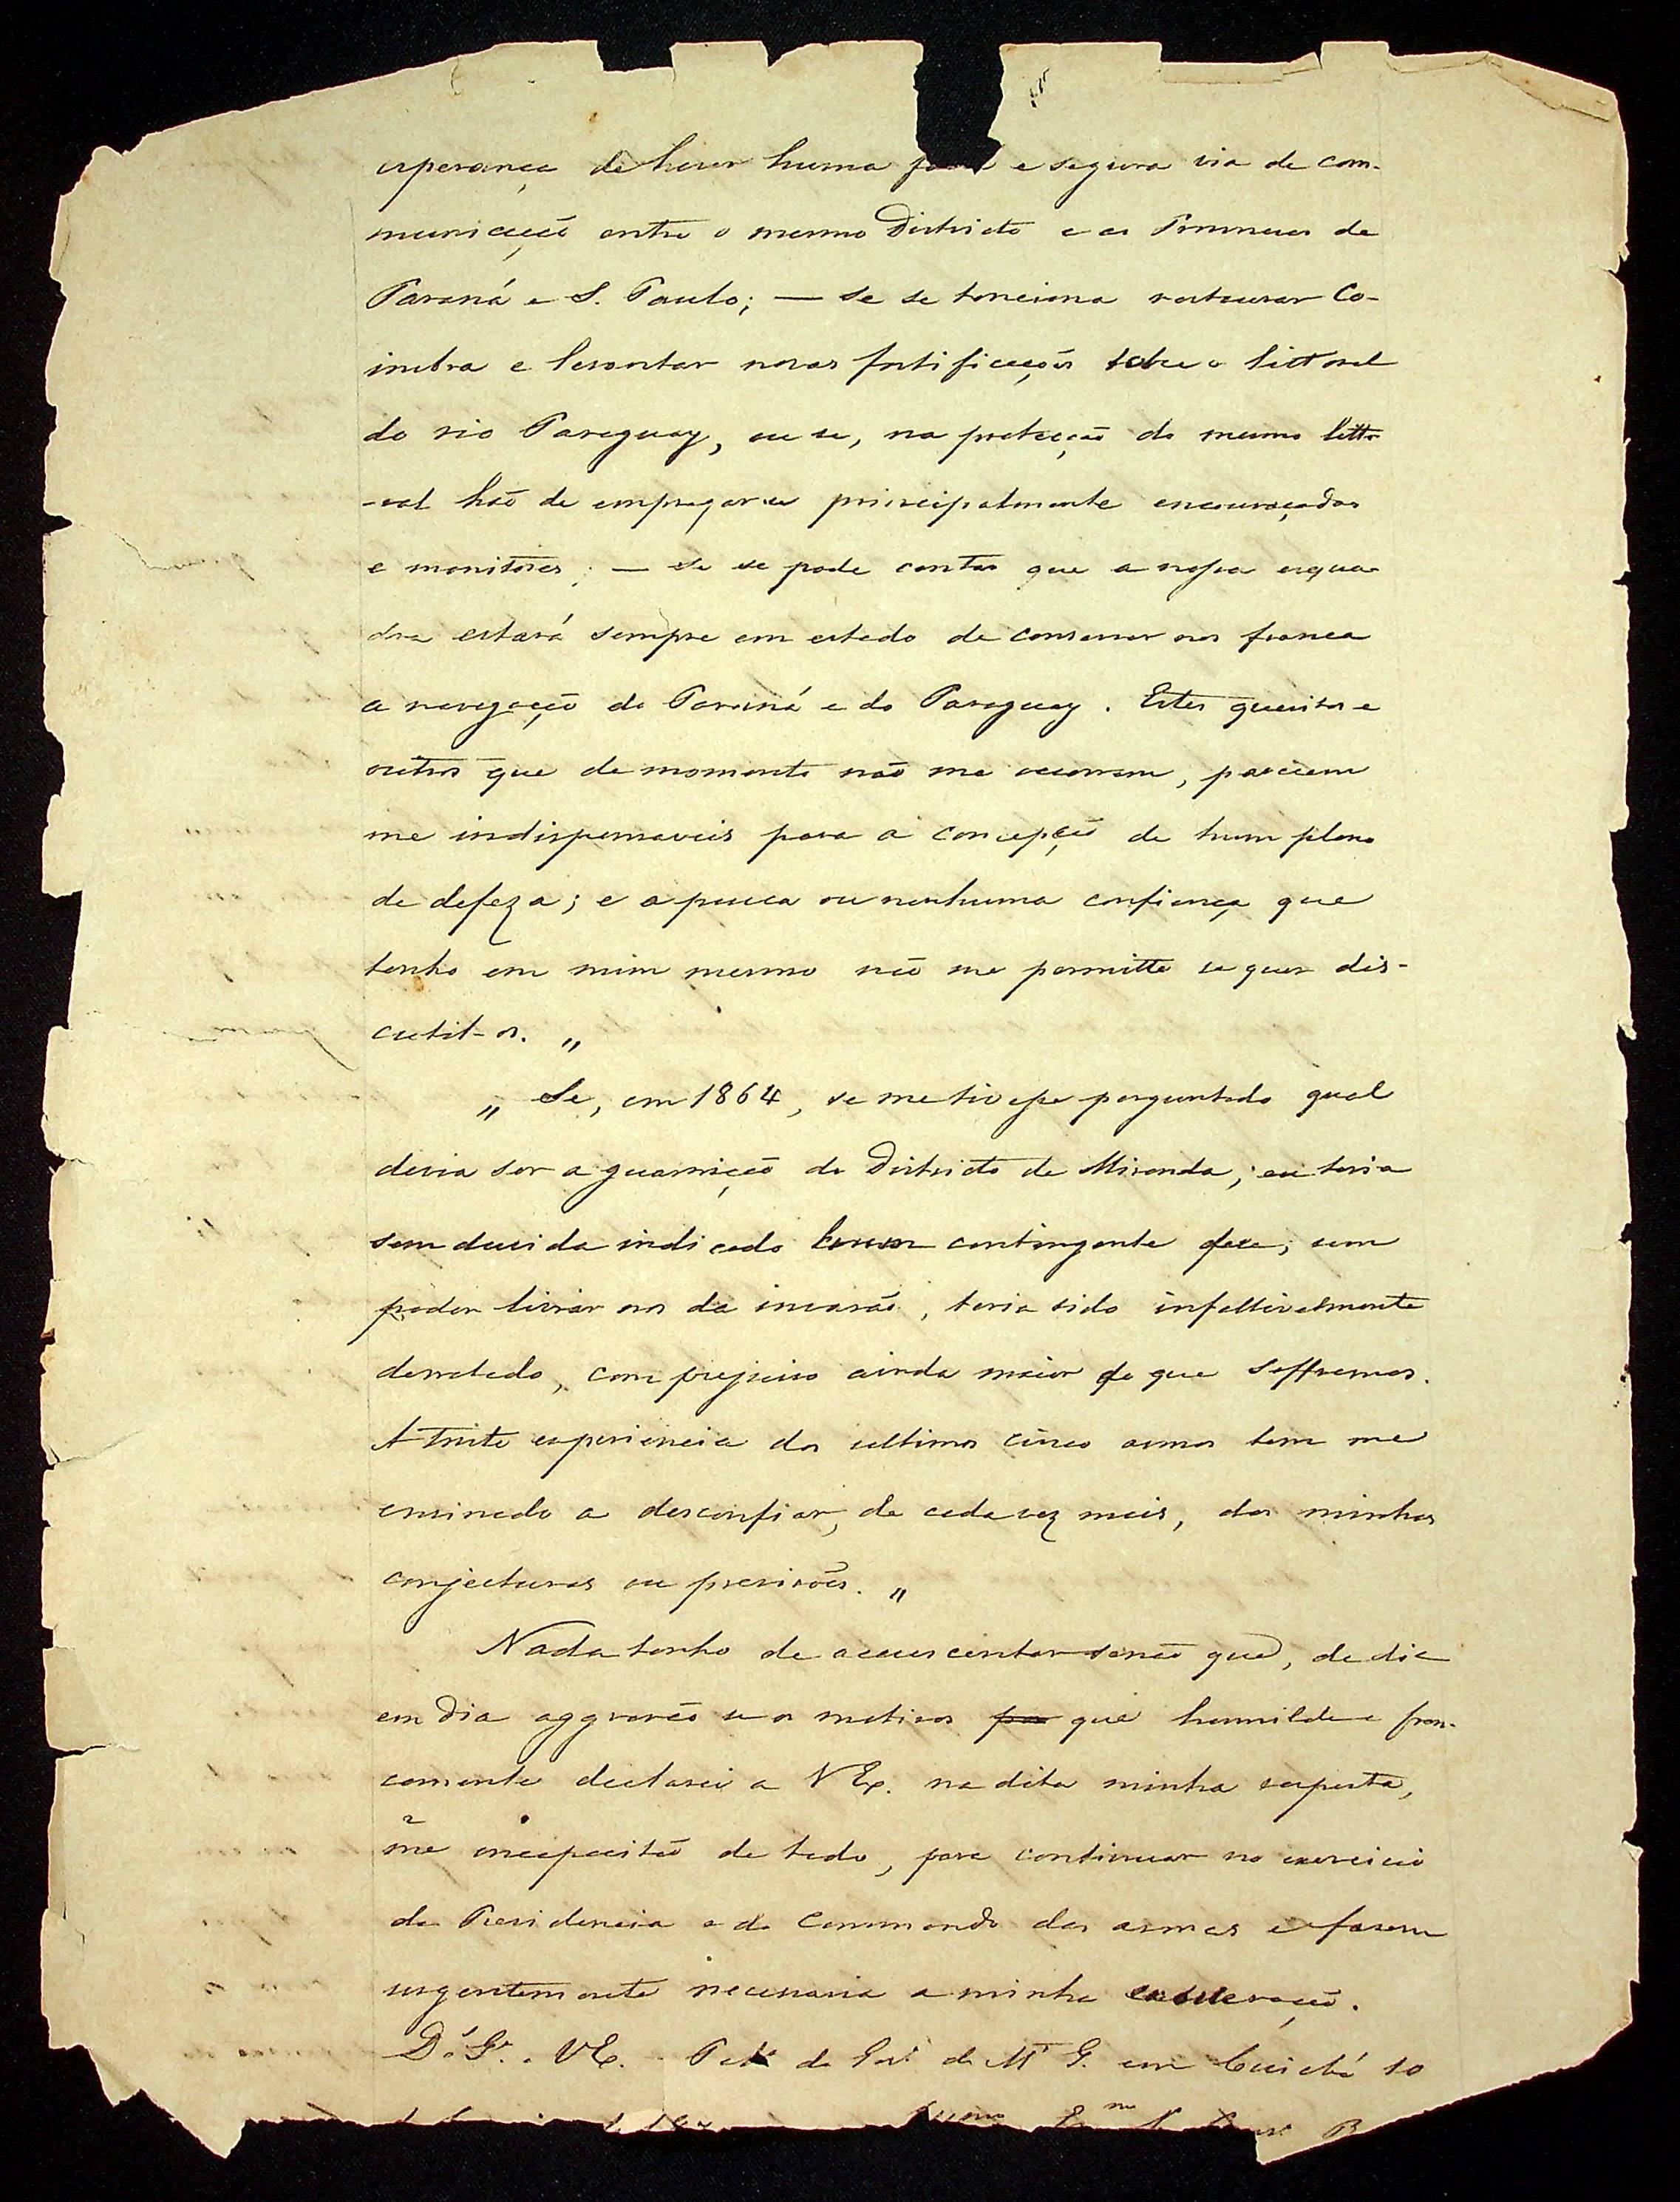 esperança de haver huma facil e segura via de com-
municação entre o mesmo Districto e as Provincias de
Paraná e S. Paulo; — se se tenciona restaurar Co-
imbra e levantar novas fortificações sobre o littoral
do rio Paraguay, ou se, na protecção do mesmo litto
-ral hão de empregar se principalmente encouraçados
e monitores; — se se pode contar que a nossa esqua-
dra estará sempre em estado de conservar nos franca
a navegação do Paraná e do Paraguay. Estes quesitos e
outros que de momento não me occorrem, parecem
me indispensaveis para a concepção de hum plano
de defeza; e a pouca ou nenhuma confiança que
tenho em mim mesmo não me permitte se quer dis-
cutil-os. „
„ Se, em 1864, se me tivesse perguntado qual
devia ser a guarnição do Districto de Miranda, eu teria
sem duvida indicado hum contingente que, sem
poder livrar nos da invasão, teria sido infallivelmente
derrotado, com prejuiso ainda maior do que soffremos.
A triste experiencia dos ultimos cinco annos tem me
ensinado a desconfiar, de cada vez mais, das minhas
conjecturas ou previsões. „
Nada tenho de accrescentar senão que, de dia
em dia aggravão se os motivos que humilde e fran-
camente declarei a V Ex. na dita minha resposta,
me incapacitão de todo, para continuar no exercicio
da Presidencia e do Commando das armas e fazem
urgentemente necessaria a minha exoneração.
D.s G.e a V E. Pal.o do Gov.o de M.to G. em Cuiabá 10